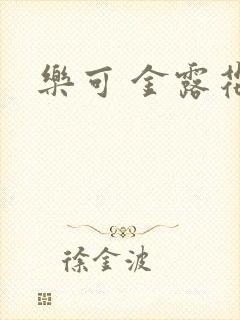 樂可 金露花
徐金波